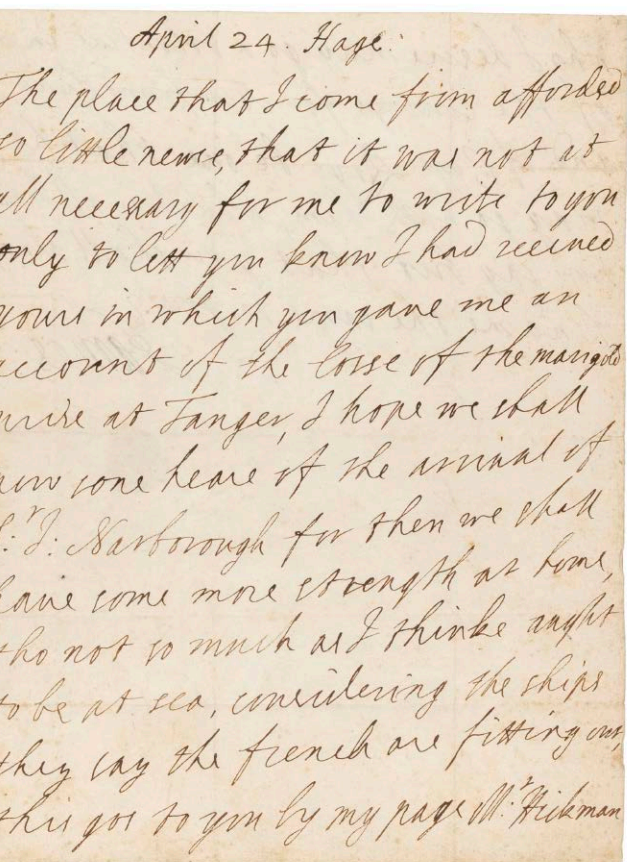 April 24. Hage:
The place that I come from afforded
so little newse, that it was not at
all necessary for me to write to you
only to lett you know I had receued
yours in which you gave me an
account of the losse of the marigold
prise at Tanger, I hope we shall
now sone heare of the arriual of
S.r J: Narborough for then we shall
haue some more strength at home,
tho not so much as I thinke aught
to be at sea, considering the ships
they say the french are fitting out,
this gos to you by my page M.r Hickman